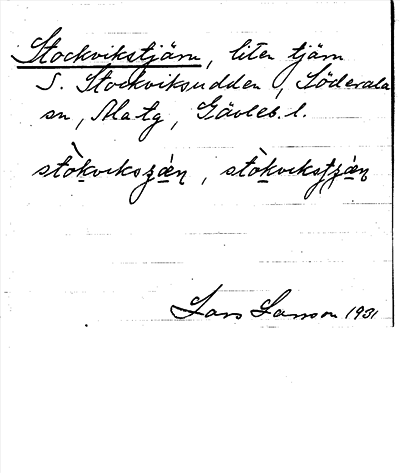 Stockvikstjärn, liten tjärn
S. Stockviksudden, Söderala
sn, Ala tg, Gävleb. l.
stòkvikszǽņ, stòkvikstzǽņ
Lars Larsson 1931